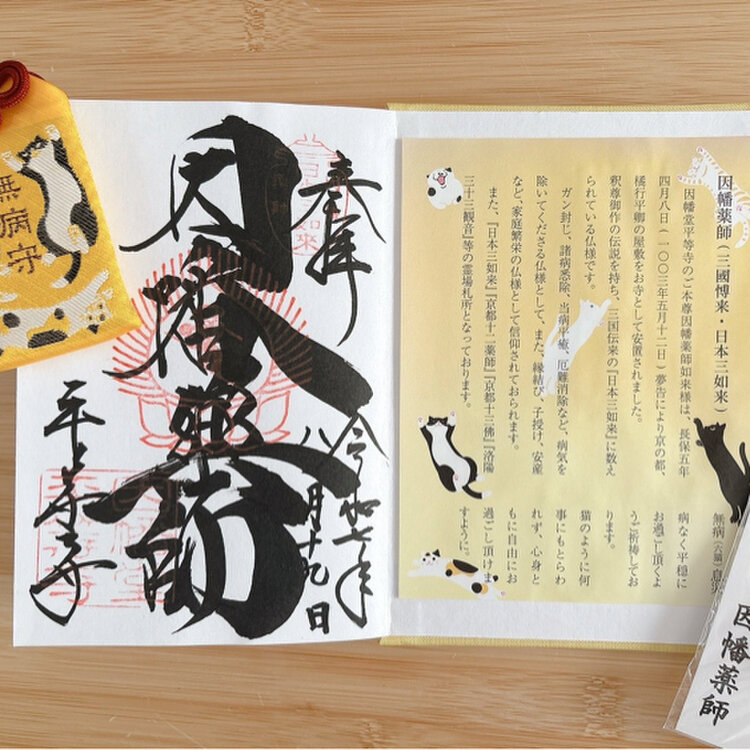 無病守
奉拝
因幡薬師
平等寺
令和七年
八月十九日
因幡薬師（三國博来・日本三如来）
因幡堂平等寺のご本尊因幡薬師如来様は、長保五年
四月八日（一〇〇三年五月十二日）夢告により京の都、
橘行平卿の屋敷をお寺として安置されました。
釈尊御作の伝説を持ち、三国伝来の『日本三如来』に数え
られている仏様です。
ガン封じ、諸病悉除、当病平癒、厄難消除など、病気を
除いてくださる仏様として、また、縁結び、子授け、安産
など、家庭繁栄の仏様として信仰されておられます。
また、『日本三如来』『京都十二薬師』『京都十三佛』『洛陽
三十三観音』等の霊場札所となっております。
無病（六猫）息災
病なく平穏に
お過ごし頂くよ
うご祈祷してお
ります。
猫のように何
事にもとらわ
れず、心身と
もに自由にお
過ごし頂けま
すように。
因幡薬師